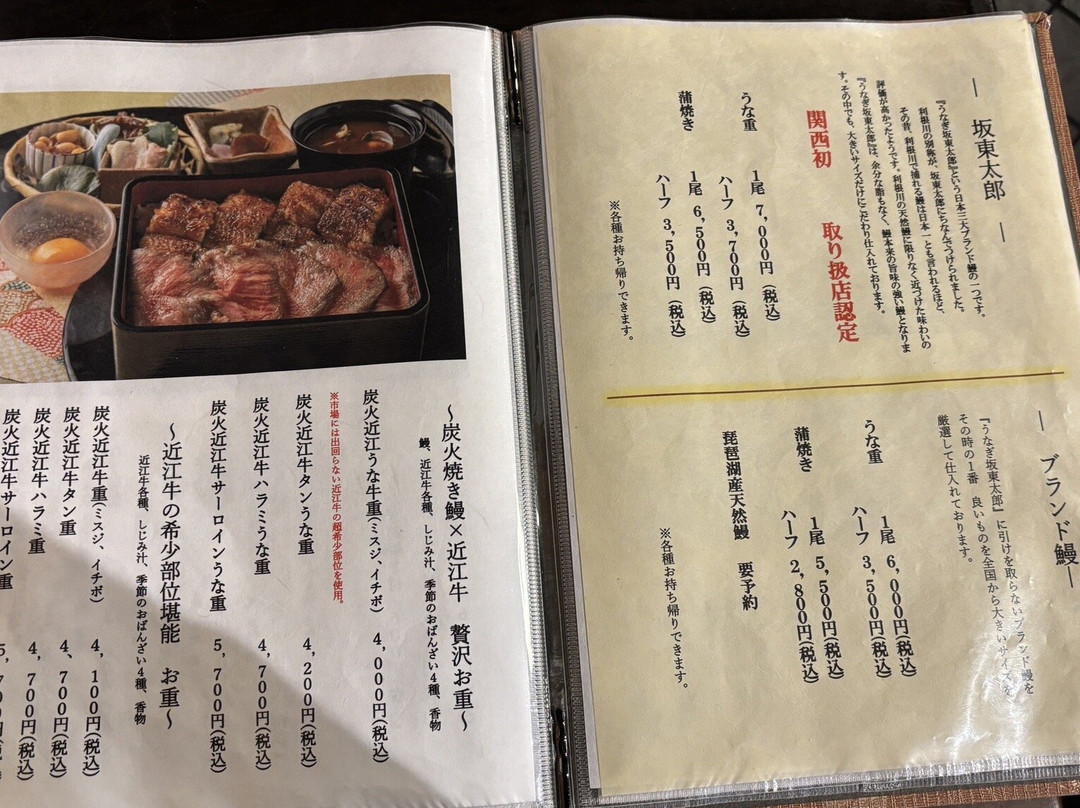 ― 坂東太郎 ―
『うなぎ坂東太郎』という日本三大ブランド鰻の一つです。
利根川の別称が、坂東太郎にちなんでつけられました。
その昔、利根川で捕れる鰻は日本一とも言われるほど、
評価が高かったようです。利根川の天然鰻に限りなく近づけた味わいの
『うなぎ坂東太郎』は、余分な脂もなく、鰻本来の旨味の強い鰻となりま
す。その中でも、大きいサイズだけにこだわり仕入れております。
関西初 取り扱店認定
うな重 1尾 7,000円(税込)
ハーフ 3,700円(税込)
蒲焼き 1尾 6,500円(税込)
ハーフ 3,500円(税込)
※各種お持ち帰りできます。
― ブランド鰻 ―
『うなぎ坂東太郎』に引けを取らないブランド鰻を
その時の1番 良いものを全国から大きいサイズを
厳選して仕入れております。
うな重 1尾 6,000円(税込)
ハーフ 3,500円(税込)
蒲焼き 1尾 5,500円(税込)
ハーフ 2,800円(税込)
琵琶湖産天然鰻 要予約
※各種お持ち帰りできます。
～炭火焼き鰻×近江牛 贅沢お重～
鰻、近江牛各種、しじみ汁、季節のおばんざい4種、香物
炭火近江うな牛重(ミスジ、イチボ) 4,000円(税込)
※市場には出回らない近江牛の超希少部位を使用。
炭火近江牛タンうな重 4,200円(税込)
炭火近江牛ハラミうな重 4,700円(税込)
炭火近江牛サーロインうな重 5,700円(税込)
～近江牛の希少部位堪能 お重～
近江牛各種、しじみ汁、季節のおばんざい4種、香物
炭火近江牛重(ミスジ、イチボ) 4,100円(税込)
炭火近江牛タン重 4、700円(税込)
炭火近江牛ハラミ重 4,700円(税込)
炭火近江牛サーロイン重